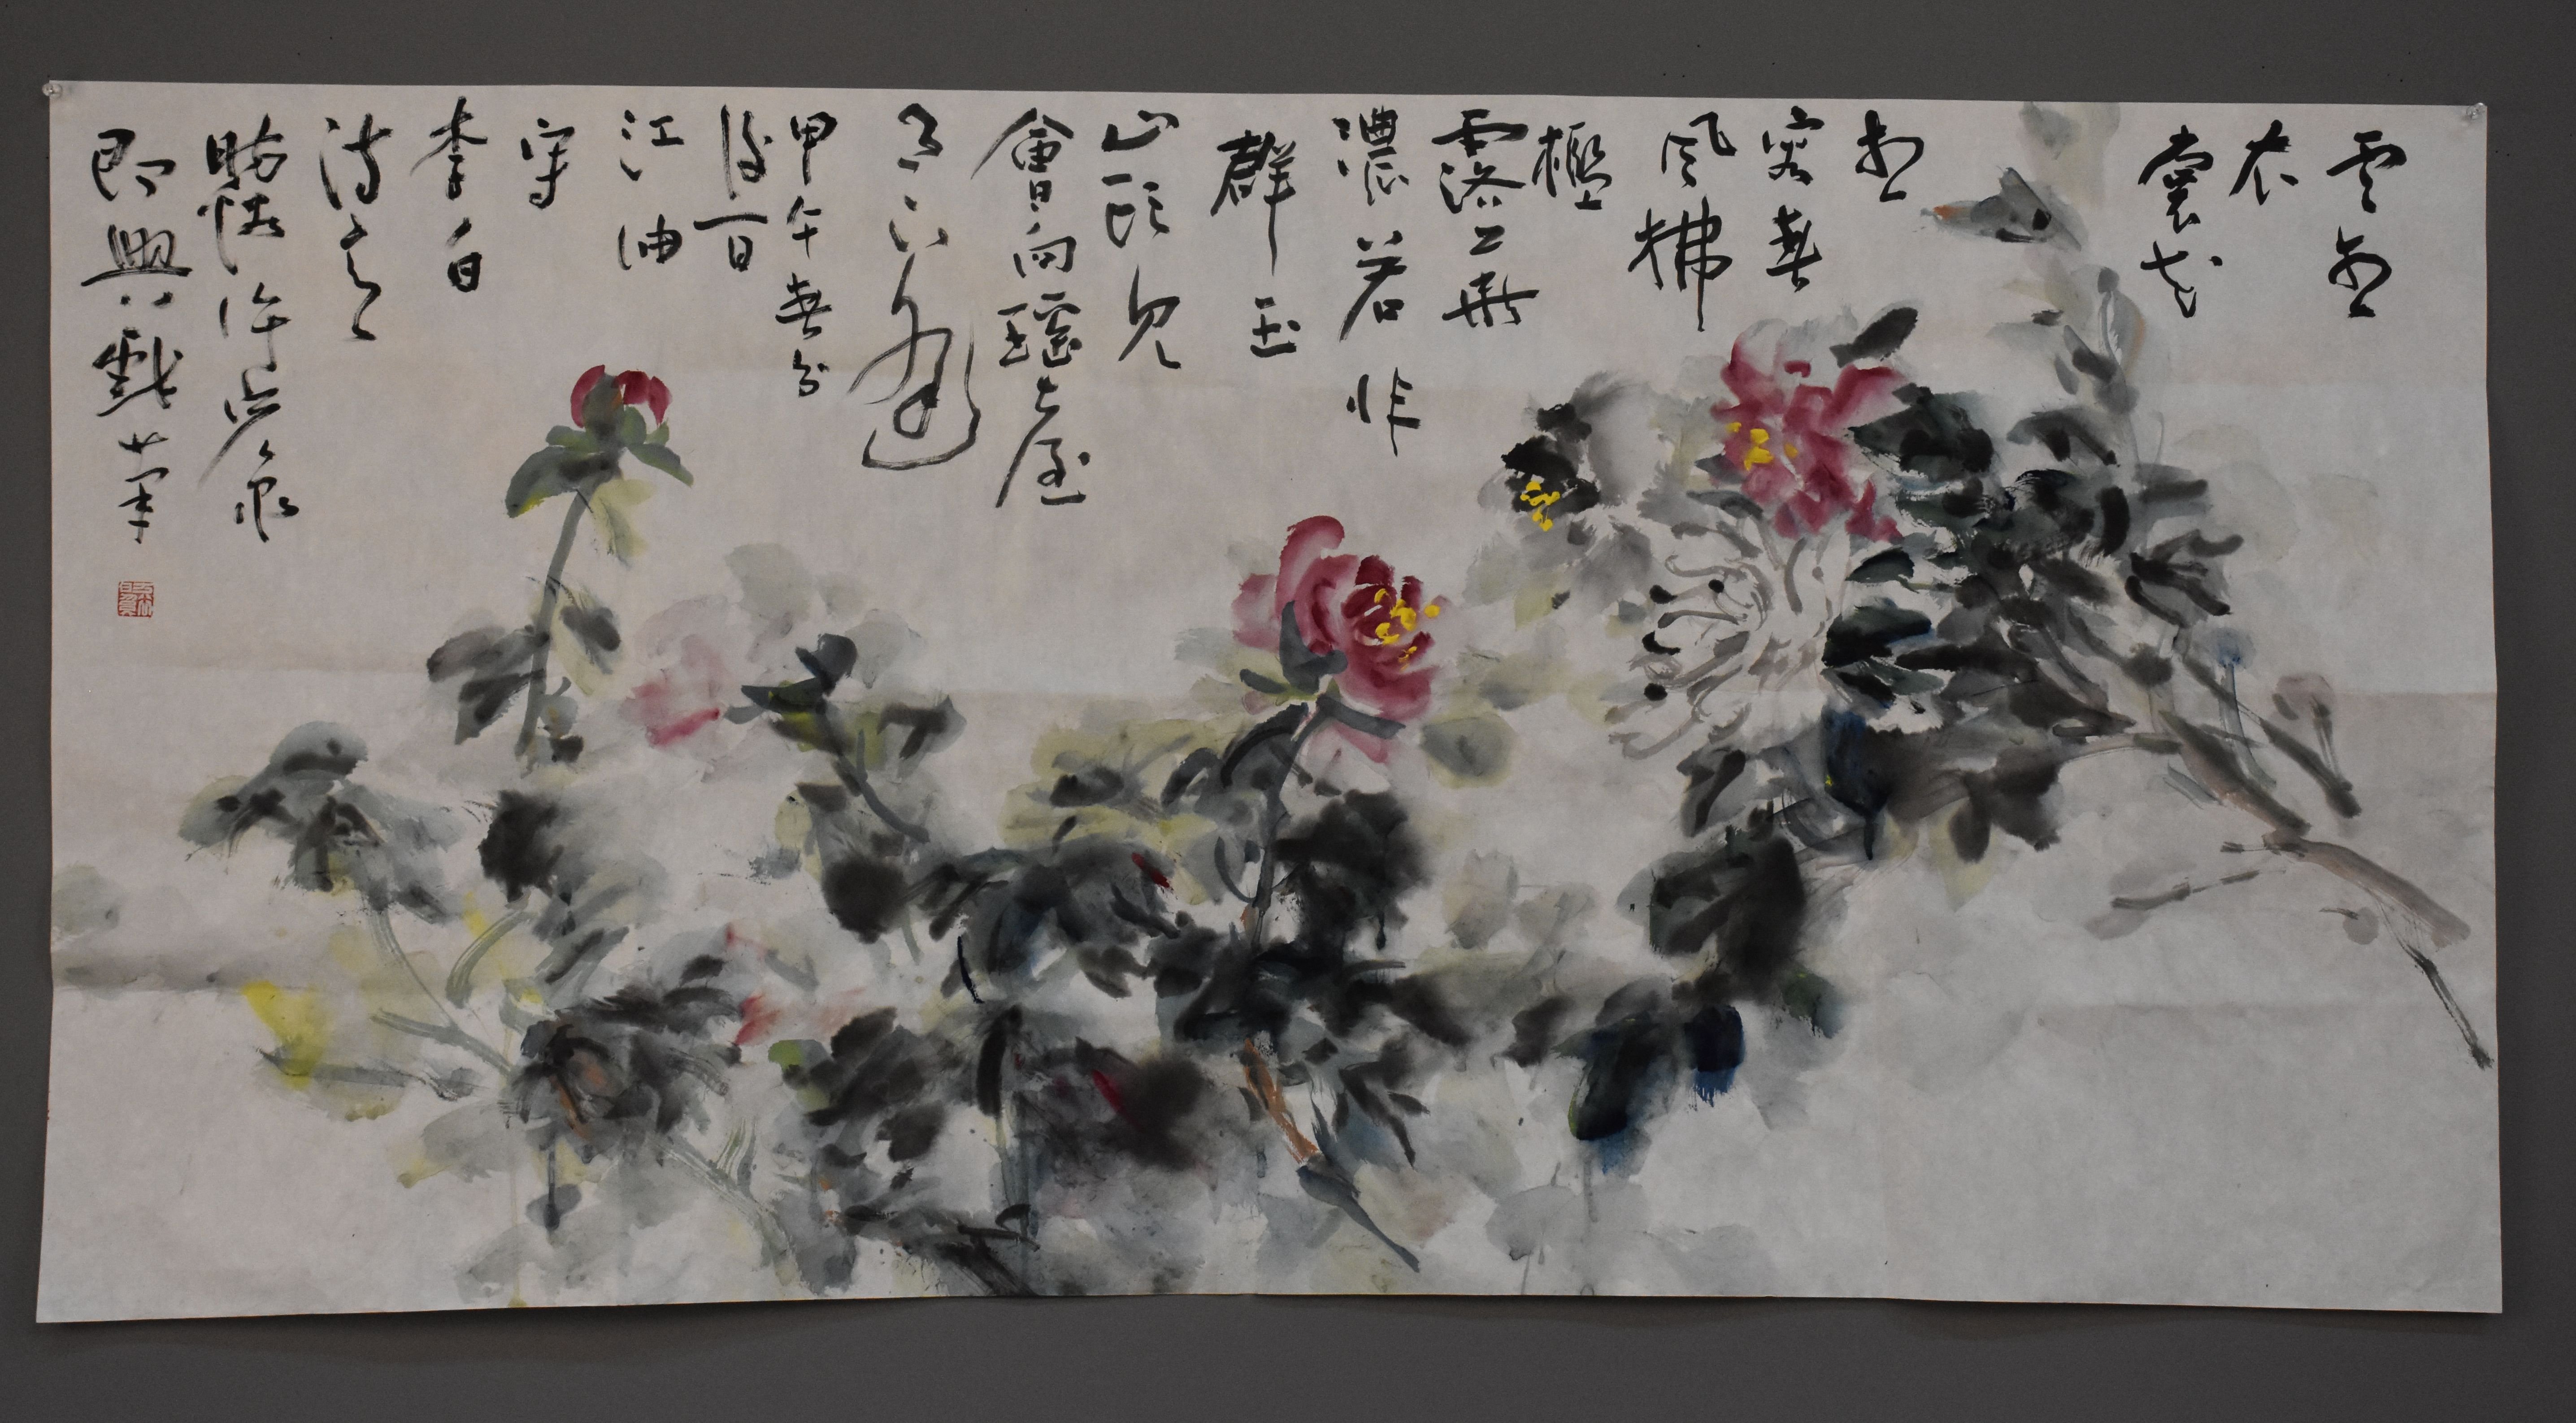 雲想
衣
裳花
想
容春
風拂
檻
露華
濃若非
群玉
山頭見
會向瑤臺
月下逢
甲午春分
後一日
江油
寫
李白
詩意
即興戲筆